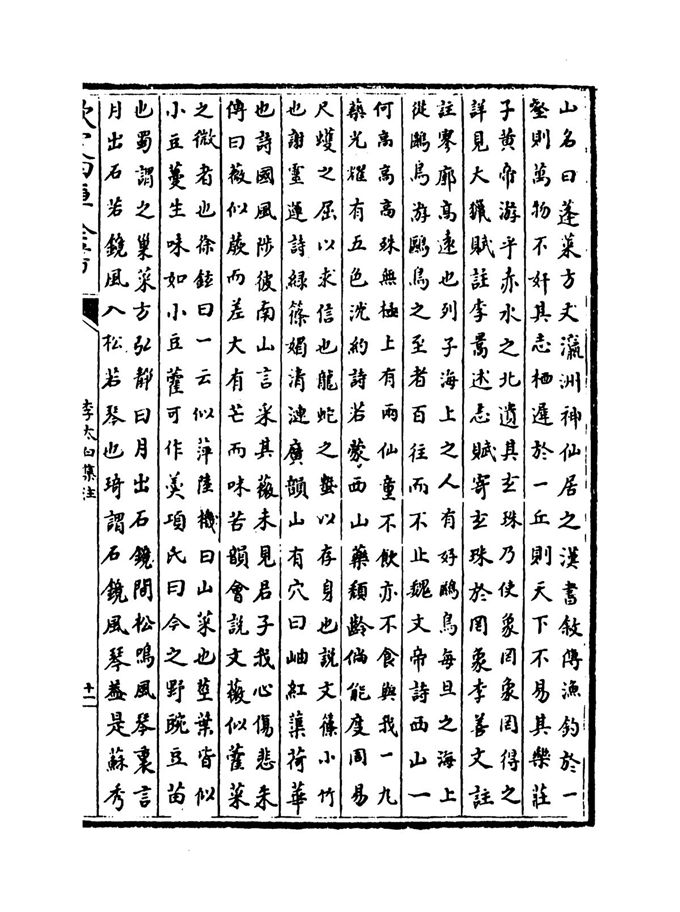 山名曰蓬萊方丈瀛洲神仙居之漢書敘傳漁釣於一
壑則萬物不奸其志栖遲於一丘則天下不易其樂莊
子黃帝游乎赤水之北遺其玄珠乃使象罔象罔得之
詳見大獵賦註李暠述志賦寄玄珠於罔象李善文註
註寥廓高遠也列子海上之人有好鷗鳥每旦之海上
從鷗鳥游鷗鳥之至者百往而不止魏文帝詩西山一
何高高高殊無極上有兩仙童不飲亦不食與我一丸
藥光耀有五色沈約詩若蒙西山藥頹齡倘能度周易
尺蠖之屈以求信也龍蛇之蟄以存身也說文篠小竹
也謝靈運詩緑篠媚清漣廣韻山有穴曰岫紅蕖荷華
也詩國風陟彼南山言采其薇未見君子我心傷悲朱
傳曰薇似蕨而差大有芒而味苦韻會說文薇似藿菜
之微者也徐鉉曰一云似萍陸機曰山菜也莖葉皆似
小豆蔓生味如小豆藿可作羮項氏曰今之野豌豆苗
也蜀謂之巢菜方弘靜曰月出石鏡間松鳴風琴裏言
月出石若鏡風入松若琴也琦謂石鏡風琴葢是蘇秀
李太白集注
十二